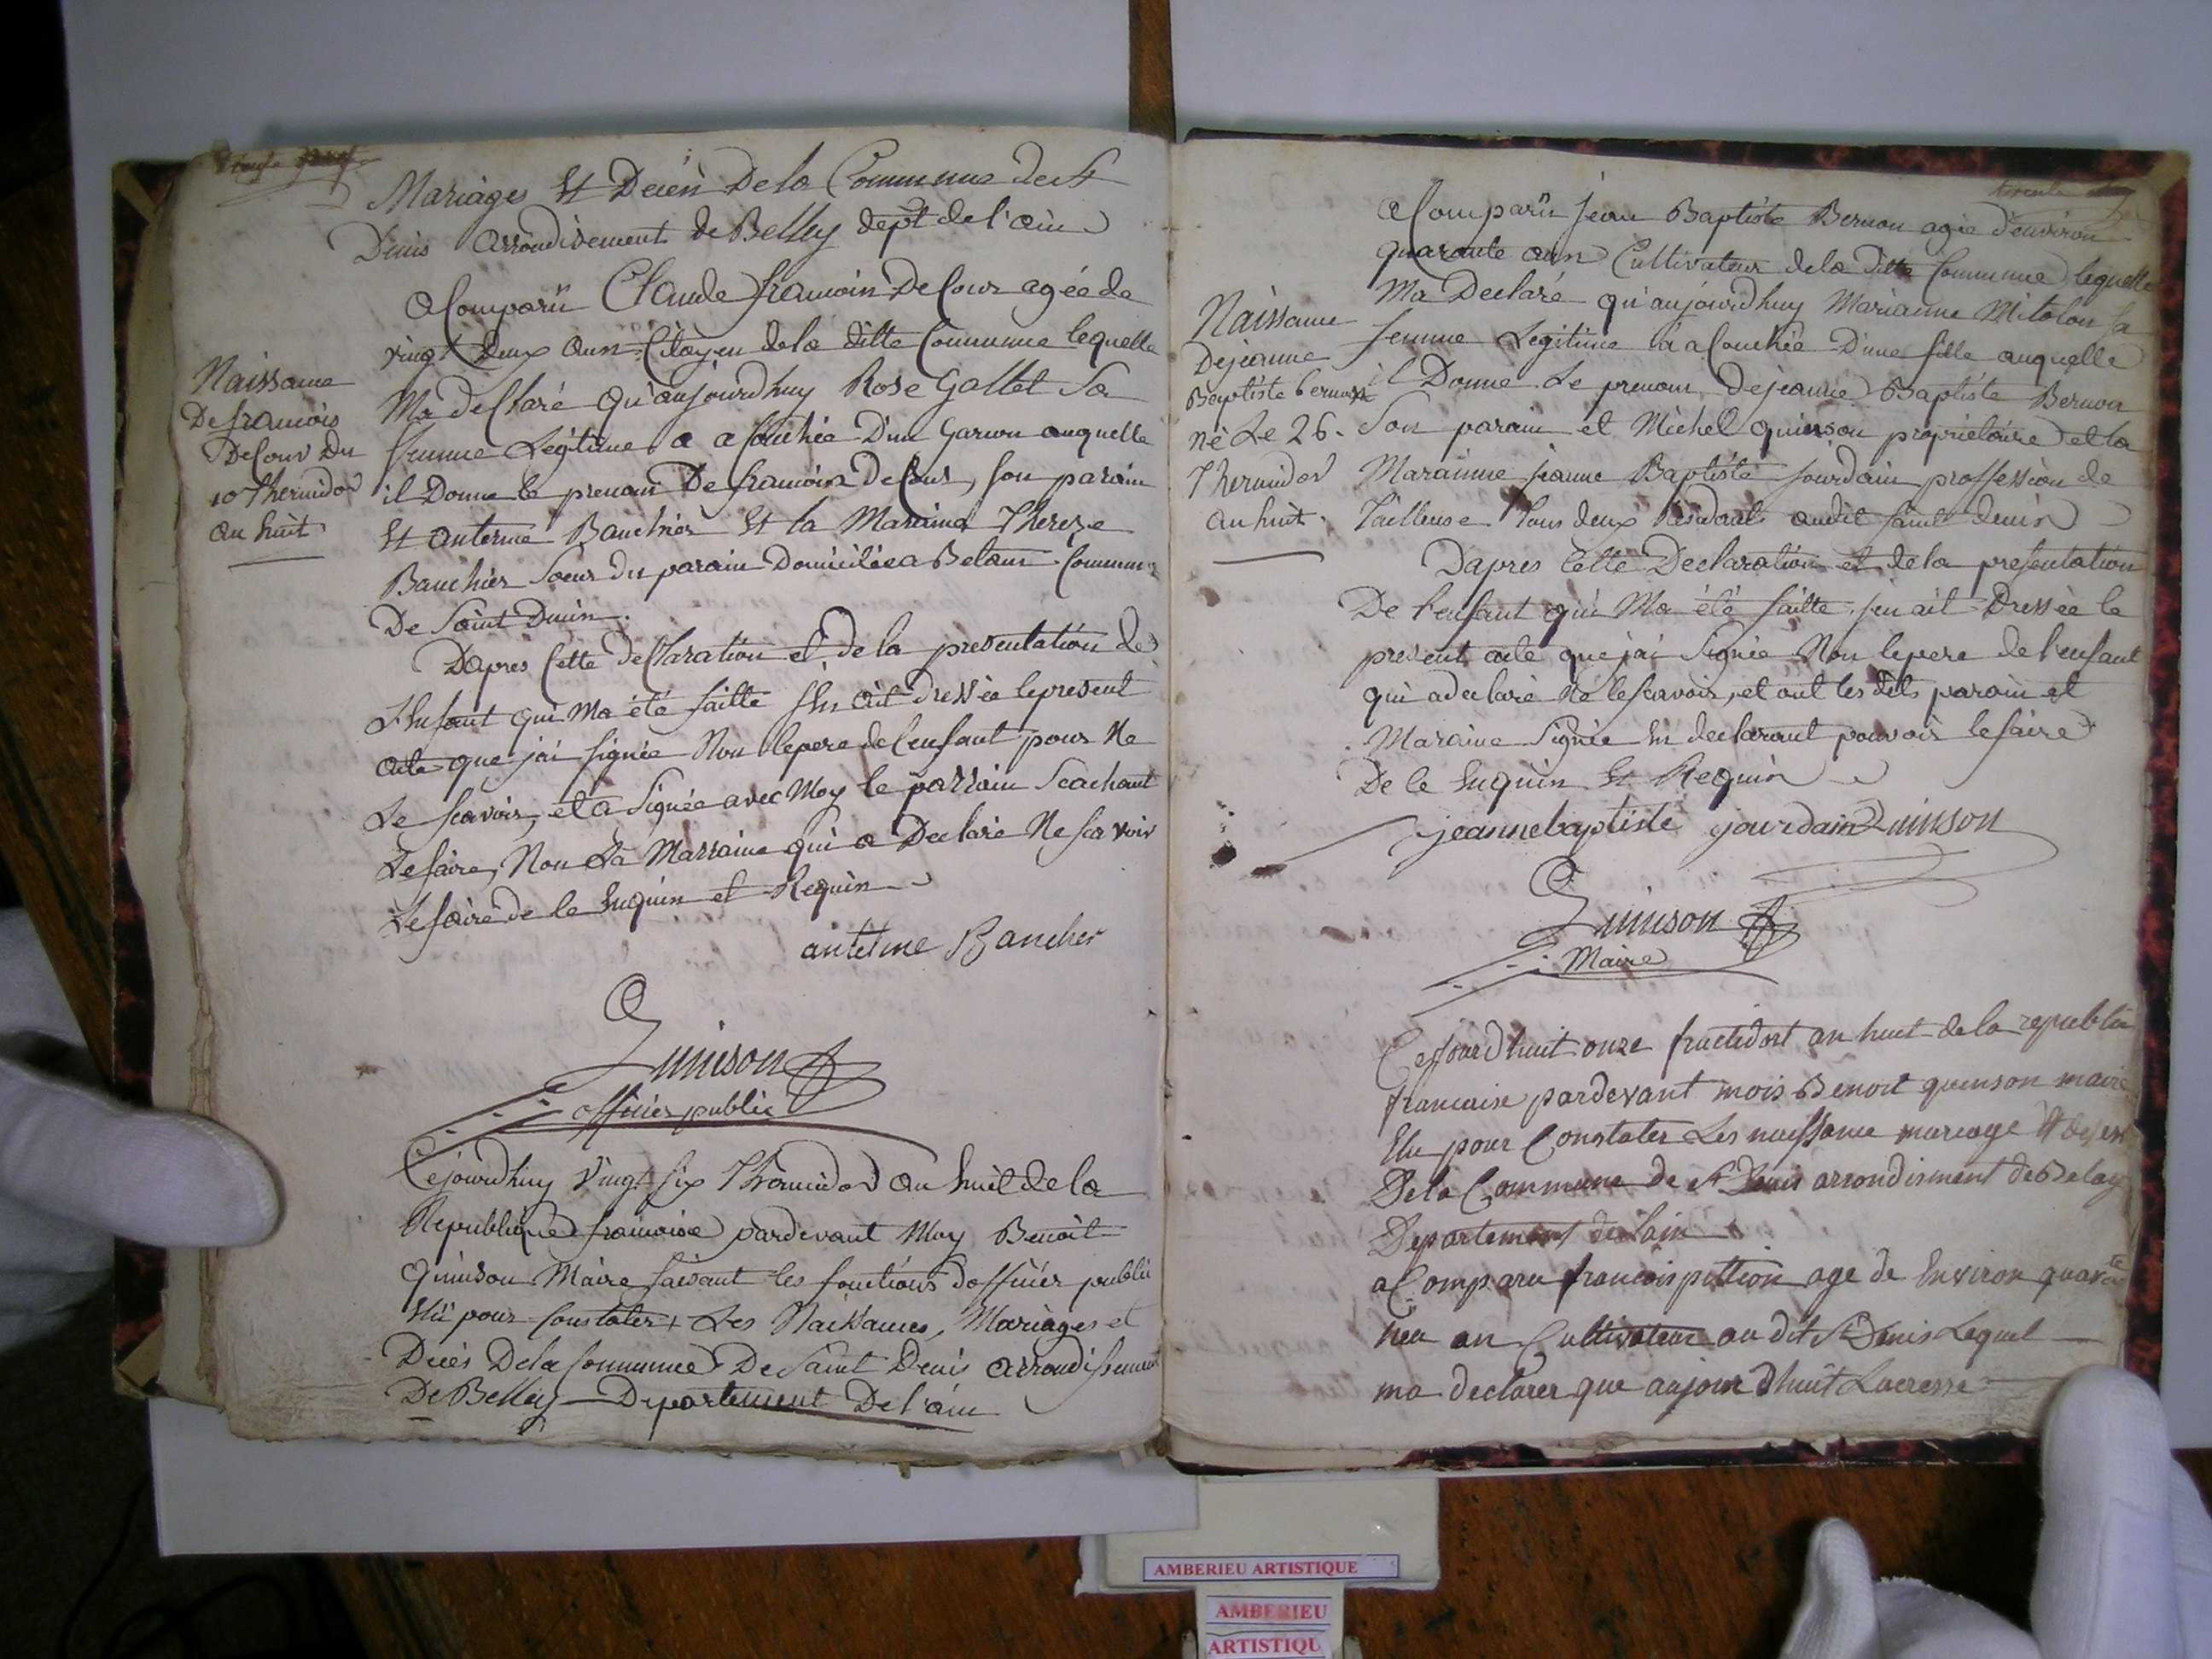 Mariages Et Decès De la Commune de St
Denis Arrondisement de Belley dept de l'ain
a Comparû Claude françois Decour agée de
vingt deux ans Citoyen dela ditte Commune lequelle
Ma declaré qu'aujourdhuy Rose Gallet Sa
femme Légitime a acouchée D'un Garcon auquelle
il Donne le prenom De françois Decour, son parain
Et antelme Bauchier Et la Maraine Thereze
Bauchier Soeur du parain Domiciliée a Commune
De Saint Denis.
Dapres Cette declaration et de la presentation de
L'Enfant qui Ma été faitte J'En ait dressée le present
acte que jai signée Non le pere de l'enfant pour Ne
Le scavoir, et a Signée avec Moy le parrain Scachant
Le faire, Non La Marraine qui a Declaré Ne scavoir
Le faire de le Enquis et Requis
antelme Baucher
Quinson
officier public
Naissance
De françois
Decour Du
10 Thermidor
an huit
Cejourdhuy Vingt six Thermidor an huit de la
Republique françoise pardevant Moy Benoit
Quinson Maire faisant les fonctions d'officier public
Elû pour Constater Les Naissances, Mariages et
Decès De la Commune De Saint Denis arrondissement
De Belley Departement De l'ain
a Comparû jean Baptiste Bernon agée d'environ
quarante ans Cultivateur dela ditte Commune lequelle
Ma Declaré qu'aujourdhuy Marianne Mitolon sa
femme Legitime a acouchée D'une fille auquelle
il Donne Le prenom de jeanne Baptiste Bernon
Son parain et Michel quinson proprietaire et la
Marainne jeanne Baptiste jourdain proffession de
Tailleuse Tous deux Residants audit saint denis
Naissance
De jeanne
Baptiste bernon
né Le 26.
Thermidor
an huit.
Dapres Cette Declaration et de la presentation
De l'enfant qui Ma été faitte j'en ait Dressée le
present acte que jai Signée Non le pere de l'enfant
qui a declaré Ne le scavoir, et ont les dits parain et
Maraine Signée En declarant pouvoir le faire
De le Enquis Et Requis
jeannebaptiste jourdain Quinson
Quinson
Maire
Cejourd huit onze fructidort an huit de la republic
francaise pardevant mois Benoit quinson maire
Elu pour Constater Les naissance mariage Et
De la Commune de St Denis arrondisment de Belay
Departement de lain
a Comparu francois pittion age de Environ quarante
neu an Cultivateur au dit St Denis Lequel
ma declarer que aujour dhuit Lucresse
AMBERIEU ARTISTIQUE
AMBERIEU
ARTISTIQU